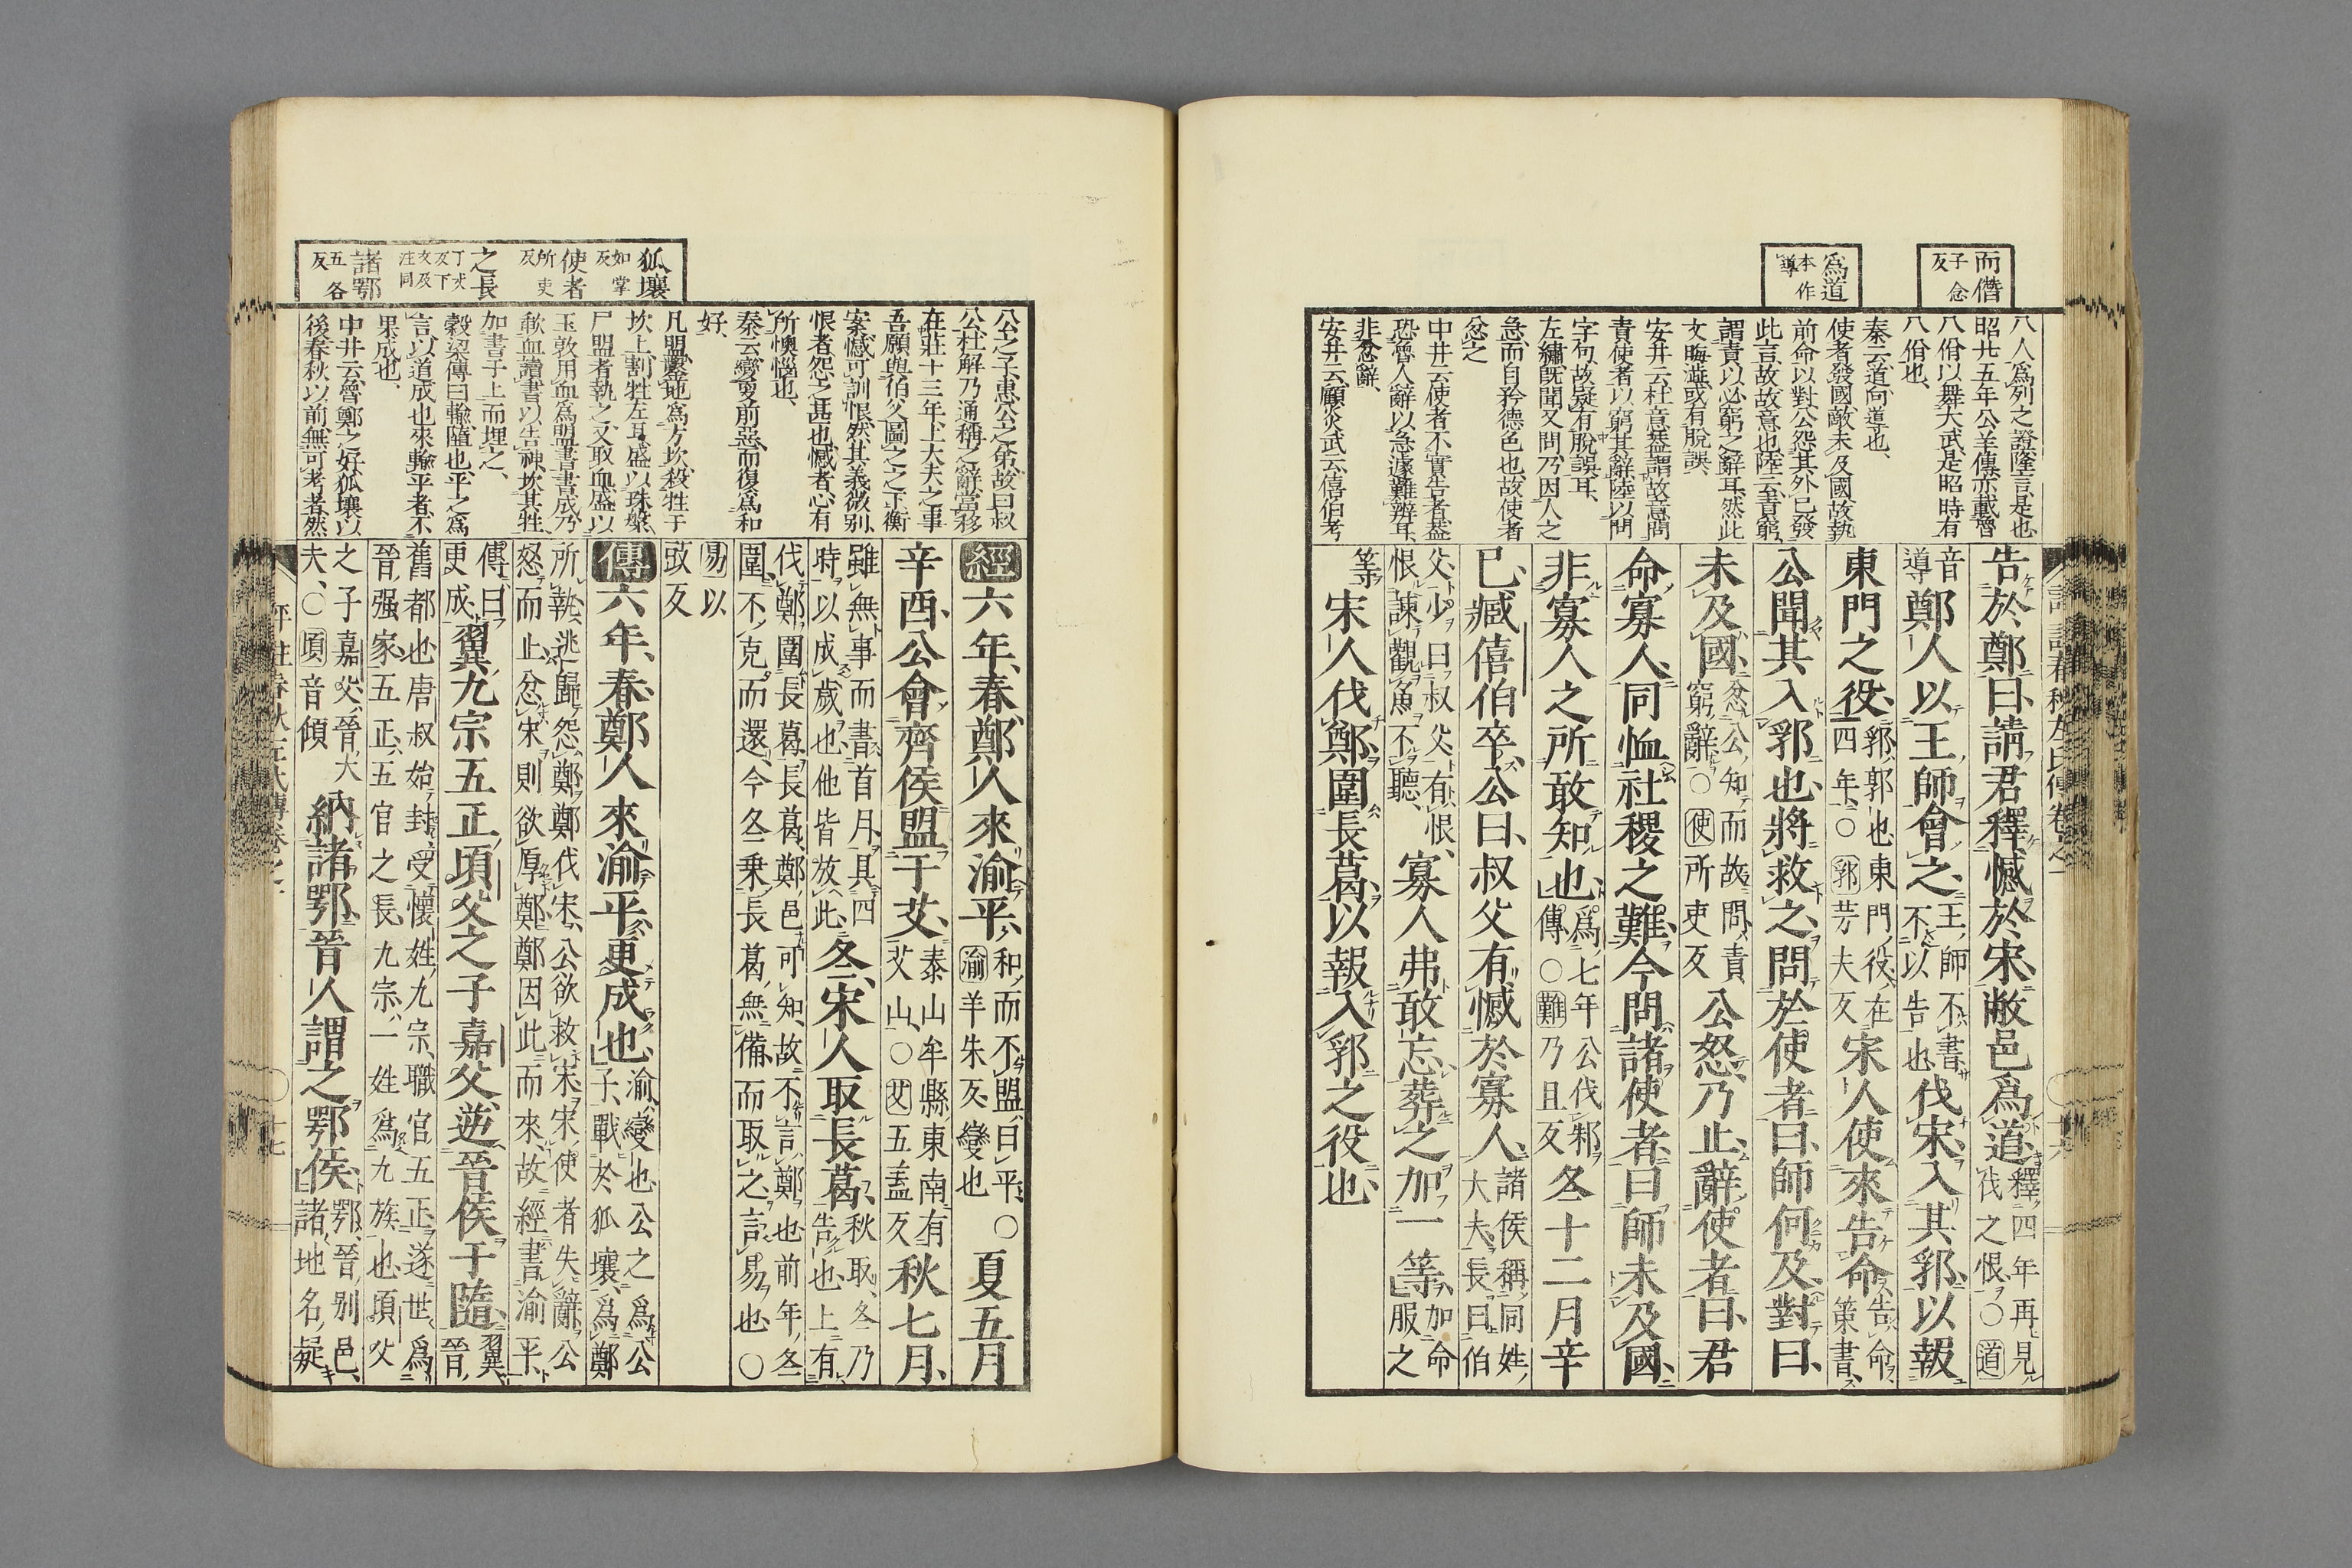 而僭
子念
反
為道
本作
導
八人爲列之證隆言是也
昭廿五年公羊傳亦載
八佾以舞大武是昭時有
八佾也、
秦云道向道也、
使者發國敵未及國故執
前命以對公怨其外已發
此言故故意也陸云至責窮
謂責以必窮之辭耳然此
文晦澁或有脫誤、
安井云杜意葢謂故意問
責使者以窮其辭陸以問
字句故疑有脫誤耳、
左繡既聞又問乃因人之
急而自矜德色也故使者
忿之
中井云使者不實告者葢
恐魯人辭以急遽難辨耳、
非忿辭、
安井云顧炎武云僖伯考
告於鄭曰請君釋憾於宋敝邑爲道
釋四年再見
伐之恨○道
音導
鄭人以王師會之
王師不書
不以告也
伐宋入其郛以報
東門之役
郛郭也東門役在
四年○郛芳夫反
宋人使來告命
告命
策書
公聞其入郛也將救之問於使者曰師何及對曰
未及國
忿公知而故問責
窮辭○使所吏反
公怒乃止辭使者曰君
命寡人同恤社稷之難今問諸使者曰師未及國
非寡人之所敢知也
爲七年公伐邾
傳○難乃旦反
冬十二月辛
巳臧僖伯卒公曰叔父有憾於寡人
諸侯稱同姓
大夫長曰伯
父少曰叔父有恨
恨諫觀魚不聽
寡人弗敢忘葬之加一等
加命
服之
等
宋人伐鄭圍長葛以報入郛之役也
狐壤
如掌
反
使者
所吏
反
之長
丁丈
反下
文及
注同
諸鄂
五各
反
公之子惠公之弟故曰叔
公杜解乃通稱之辭當移
在莊十三年上大夫之事
吾願與伯父圖之之下衡
案憾可訓恨然其義微别
恨者怨之甚也憾者心有
所懊惱也、
秦云變更前惡而復爲和
好、
凡盟鑿地爲方坎殺牲于
坎上割牲左耳盛以珠槃
尸盟者執之又取血盛以
玉敦用血爲盟書書成乃
歃血讀書以告神坎其牲
加書于上而埋之、
穀梁傳曰輸墮也平之爲
言以道成也來輸平者不
果成也、
中井云魯鄭之好狐壤以
後春秋以前無可考者然
經六年春鄭人來渝平
和而不盟曰平○
渝羊朱反變也
夏五月
辛酉公會齊侯盟于艾
泰山牟縣東南有
艾山○艾五蓋反
秋七月
雖無事而書首月具四
時以成歲也他皆放此
冬宋人取長葛
秋取冬乃
告也上有
伐鄭圍長葛長葛鄭邑可知故不言鄭也前年冬
圍不克而還今冬乘長葛無備而取之言易也○
易以
豉反
傳六年春鄭人來渝平更成也
渝變也公之爲公
子戰於狐壤爲鄭
所執逃歸怨鄭鄭伐宋公欲救宋宋使者失辭公
怒而止忿宋則欲厚鄭鄭因此而來故經書渝平
傳曰
更成
翼九宗五正頃父之子嘉父逆晉侯于隨
翼
晉
舊都也唐叔始封受懷姓九宗職官五正遂世爲
晉强家五正五官之長九宗一姓爲九族也頃父
之子嘉父晉大
夫○頃音傾
納諸鄂晉人謂之鄂侯
鄂晉别邑
諸地名疑